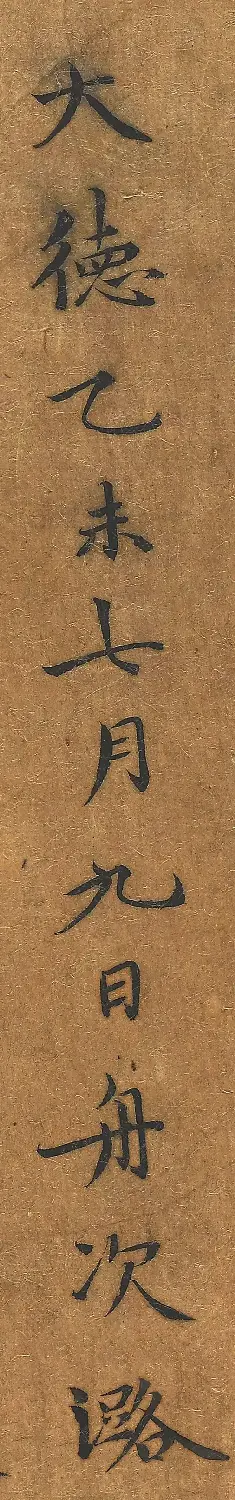 大德乙未七月九日舟次潞